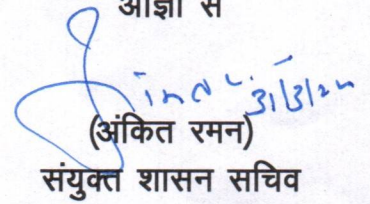 आज्ञा से
(अंकित रमन)
संयुक्त शासन सचिव